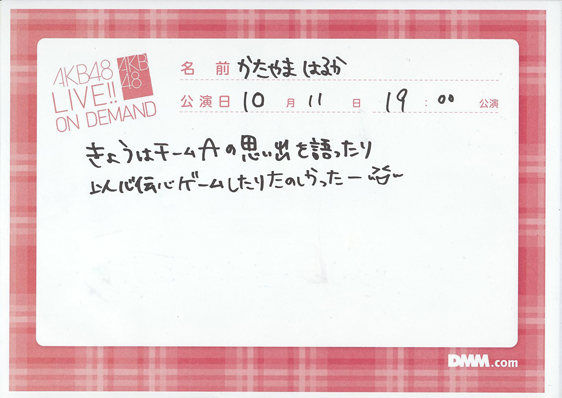 AKB48
LIVE!!
ON DEMAND
AKB
48
名前 かたやま はるか
公演日 10月 11日 19:00 公演
きょうはチームAの思い出を語ったり
以心伝心ゲームしたりたのしかったー
DMM.com